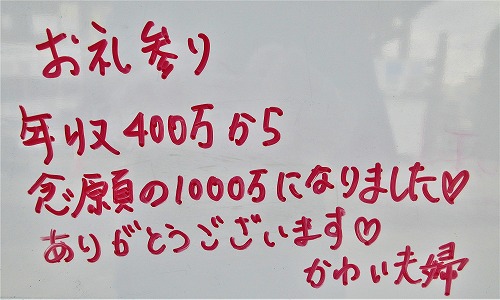 お礼参り
年収400万から
念願の1000万になりました♡
ありがとうございます♡
かわい夫婦